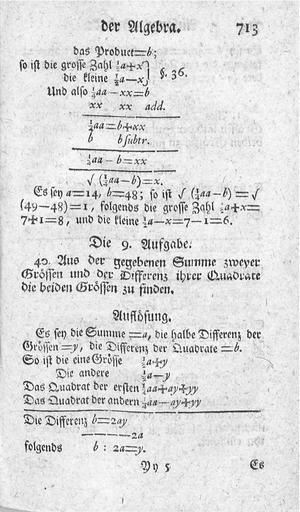 der Algebra. 713
das Product=b;
so ist die grosse Zahl ½a+x } §. 36.
die kleine ½a—x
Und also ¼aa—xx=b
xx xx add.
¼aa=b+xx
b b subtr.
¼aa—b=xx
√ (¼aa—b)=x.
Es sey a=14, b=48; so ist √ (¼aa—b)=√
(49—48)=1, folgends die grosse Zahl ½a+x=
7+1=8, und die kleine ½a—x=7—1=6.
Die 9. Aufgabe.
40. Aus der gegebenen Summe zweyer
Grössen und der Differenz ihrer Quadrate
die beiden Grössen zu finden.
Auflösung.
Es sey die Summe =a, die halbe Differenz der
Grössen=y, die Differenz der Quadrate =b.
So ist die eine Grösse ½a+y
Die andere ½a—y
Das Quadrat der ersten ¼aa+ay+yy
Das Quadrat der andern ¼aa—ay+yy
Die Differenz b=2ay
2a
folgends b : 2a=y.
Yy 5 Es